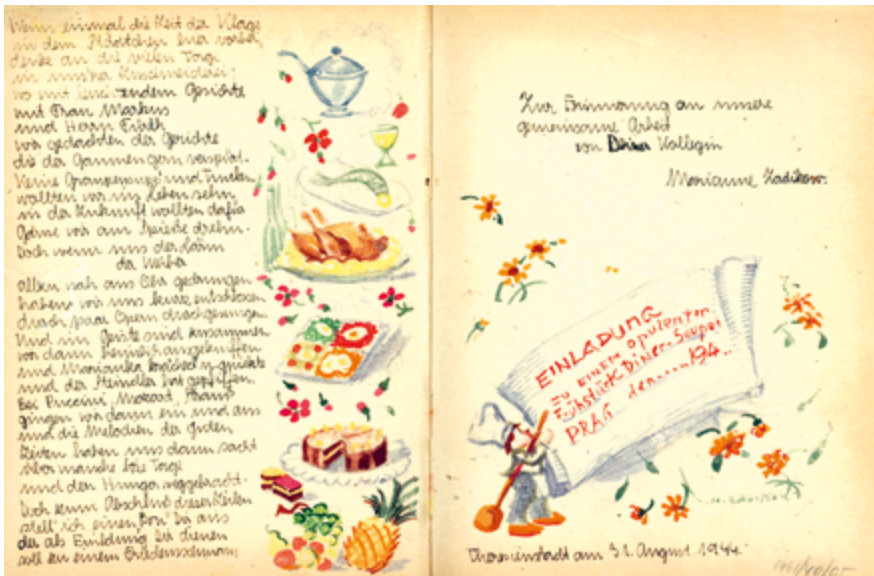 Wenn einmal die Zeit der Klage
in dem Städtchen hier vorbei,
denke an die vielen Tage
in uns'rer
wo mit leuchtendem Gesichte
mit Frau Markus
und Herrn Fürth
wir gedachten der Gerichte
die der Gaumen gern verspürt.
Keine und
wollten wir im Leben sehn,
in der Zukunft wollten dafür
Gäns wir am drehn.
Doch wenn uns der Lärm
der Weiber
allzu nah ans Ohr gedrungen
haben wir uns kurz entschlossen
durch paar Opern durchgesungen
Und im Geiste sind zusammen
wir dann heimlich ausgekniffen
und Marianka
und der Steindler hat gepfiffen.
Bei Puccini, Mozart,
gingen wir dann ein und aus
und die Melodien der Großen
Zeiten haben uns dann sacht
über manche böse Tage
und den Hunger weggebracht.
Doch zum Abschluß dieser Zeilen
stell' ich einen "Bon" Dir aus
der als Einladung Dir dienen
soll zu einem Friedensschmaus,
Zur Erinnerung an unsere
gemeinsame Arbeit
von Deiner Kollegin
Marianne Zadikow.
EINLADUNG
ZU EINEM opulenten
Frühstück-Diner-Souper
PRAG den......194..
M. ZADIKOW
Theresienstadt am 31. August 1944.